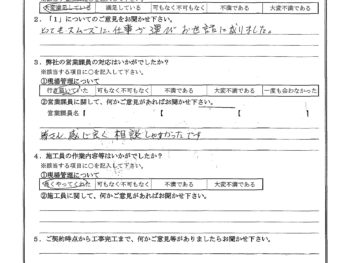 大変満足している 満足している 可もなく不可もなく 不満である 大変不満である
2．「1」についてのご意見をお聞かせ下さい。
とてもスムーズに、仕事が運びお世話に成りました。
3．弊社の営業課員の対応はいかがでしたか？
※該当する項目に○を記入して下さい。
①現場管理について
行き届いていた 可もなく不可もなく 不満である 大変不満である 一度も会わなかった
②営業課員に関して、何かご意見があればお聞かせ下さい。
営業課員名【 】【 】【 】
皆さん、感じ良く相談しやすかったです
4．施工員の作業内容等はいかがでしたか？
※該当する項目に○を記入して下さい。
①現場管理について
良くやってくれた 可もなく不可もなく 不満である 大変不満である
②施工員に関して、何かご意見があればお聞かせ下さい。
5．ご契約時点から工事完工まで、何かご意見等がありましたらお聞かせ下さい。